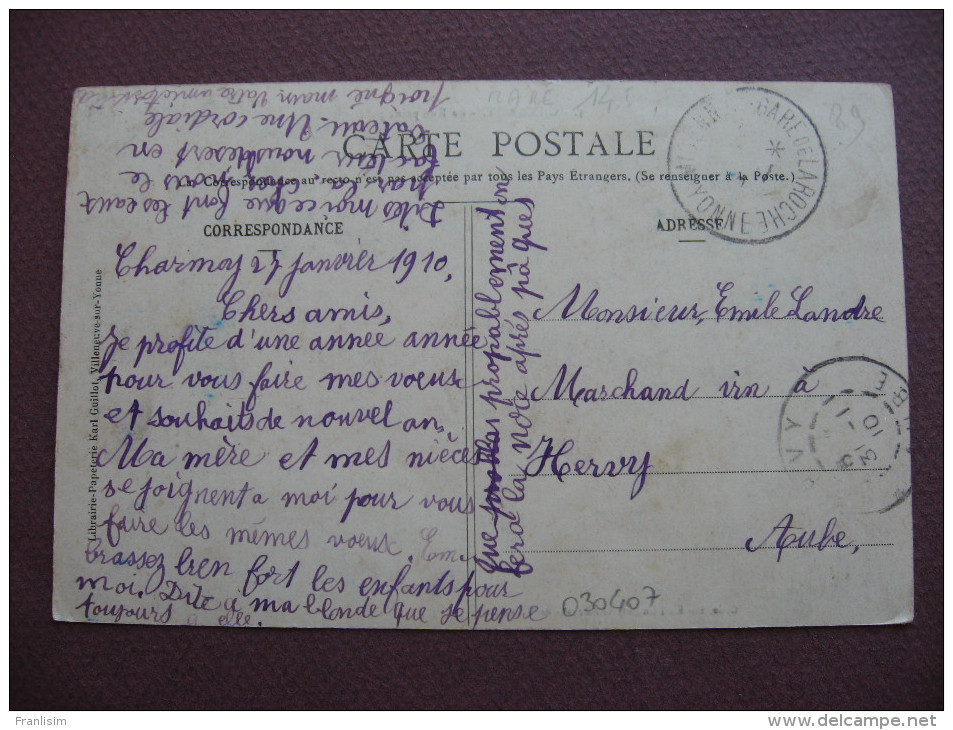 CARTE POSTALE
La Correspondance au recto n'est pas acceptée par tous les Pays Étrangers. (Se renseigner à la Poste.)
CORRESPONDANCE
ADRESSE
Charmoy 27 janvier 1910,
Chers amis,
Je profite d'une année année
pour vous faire mes voeux
et souhaits de nouvel an.
Ma mère et mes nièces
se joignent a moi pour vous
faire les mêmes voeux. Em-
brassez bien fort les enfants pour
moi. Dite a ma blonde que je pense
toujours a elle.
Dites moi ce que font les eaux
par la vois le
nous desert en
bateau. Une cordiale
poigné main Votre amie
que probablement on
fera la noce aprés pâques
Monsieur, Emile Landre
Marchand vin á
Hervy
Aube,
GARE DE LAROCHE
YONNE
VY
10
030407
RARE 145
Librairie-Papeterie Karl Guillot, Villeneuve-sur-Yonne
Franlisim
delcampe.net